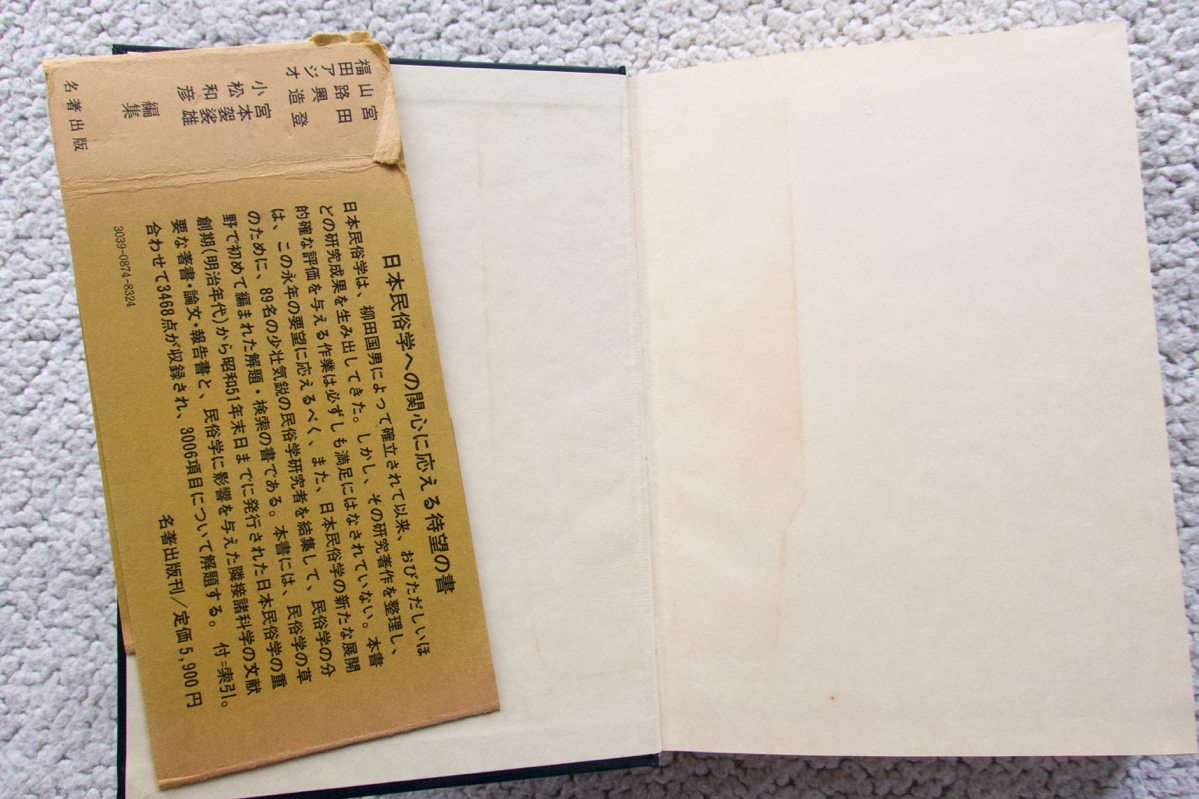 宮田登
山路興造
福田アジオ
宮本袈裟雄
小松和彦
編集
名著出版
日本民俗学への関心に応える待望の書
日本民俗学は、柳田国男によって確立されて以来、おびただしいほ
どの研究成果を生み出してきた。しかし、その研究著作を整理し、
的確な評価を与える作業は必ずしも満足にはなされていない。本書
は、この永年の要望に応えるべく、また、日本民俗学の新たな展開
のために、89名の少壮気鋭の民俗学研究者を結集して、民俗学の分
野で初めて編まれた解題・検索の書である。本書には、民俗学の草
創期(明治年代)から昭和51年末日までに発行された日本民俗学の重
要な著書・論文・報告書と、民俗学に影響を与えた隣接諸科学の文献
合わせて3468点が収録され、3006項目について解題する。 付=索引。
名著出版刊／定価5,900円
3039-0874-8324